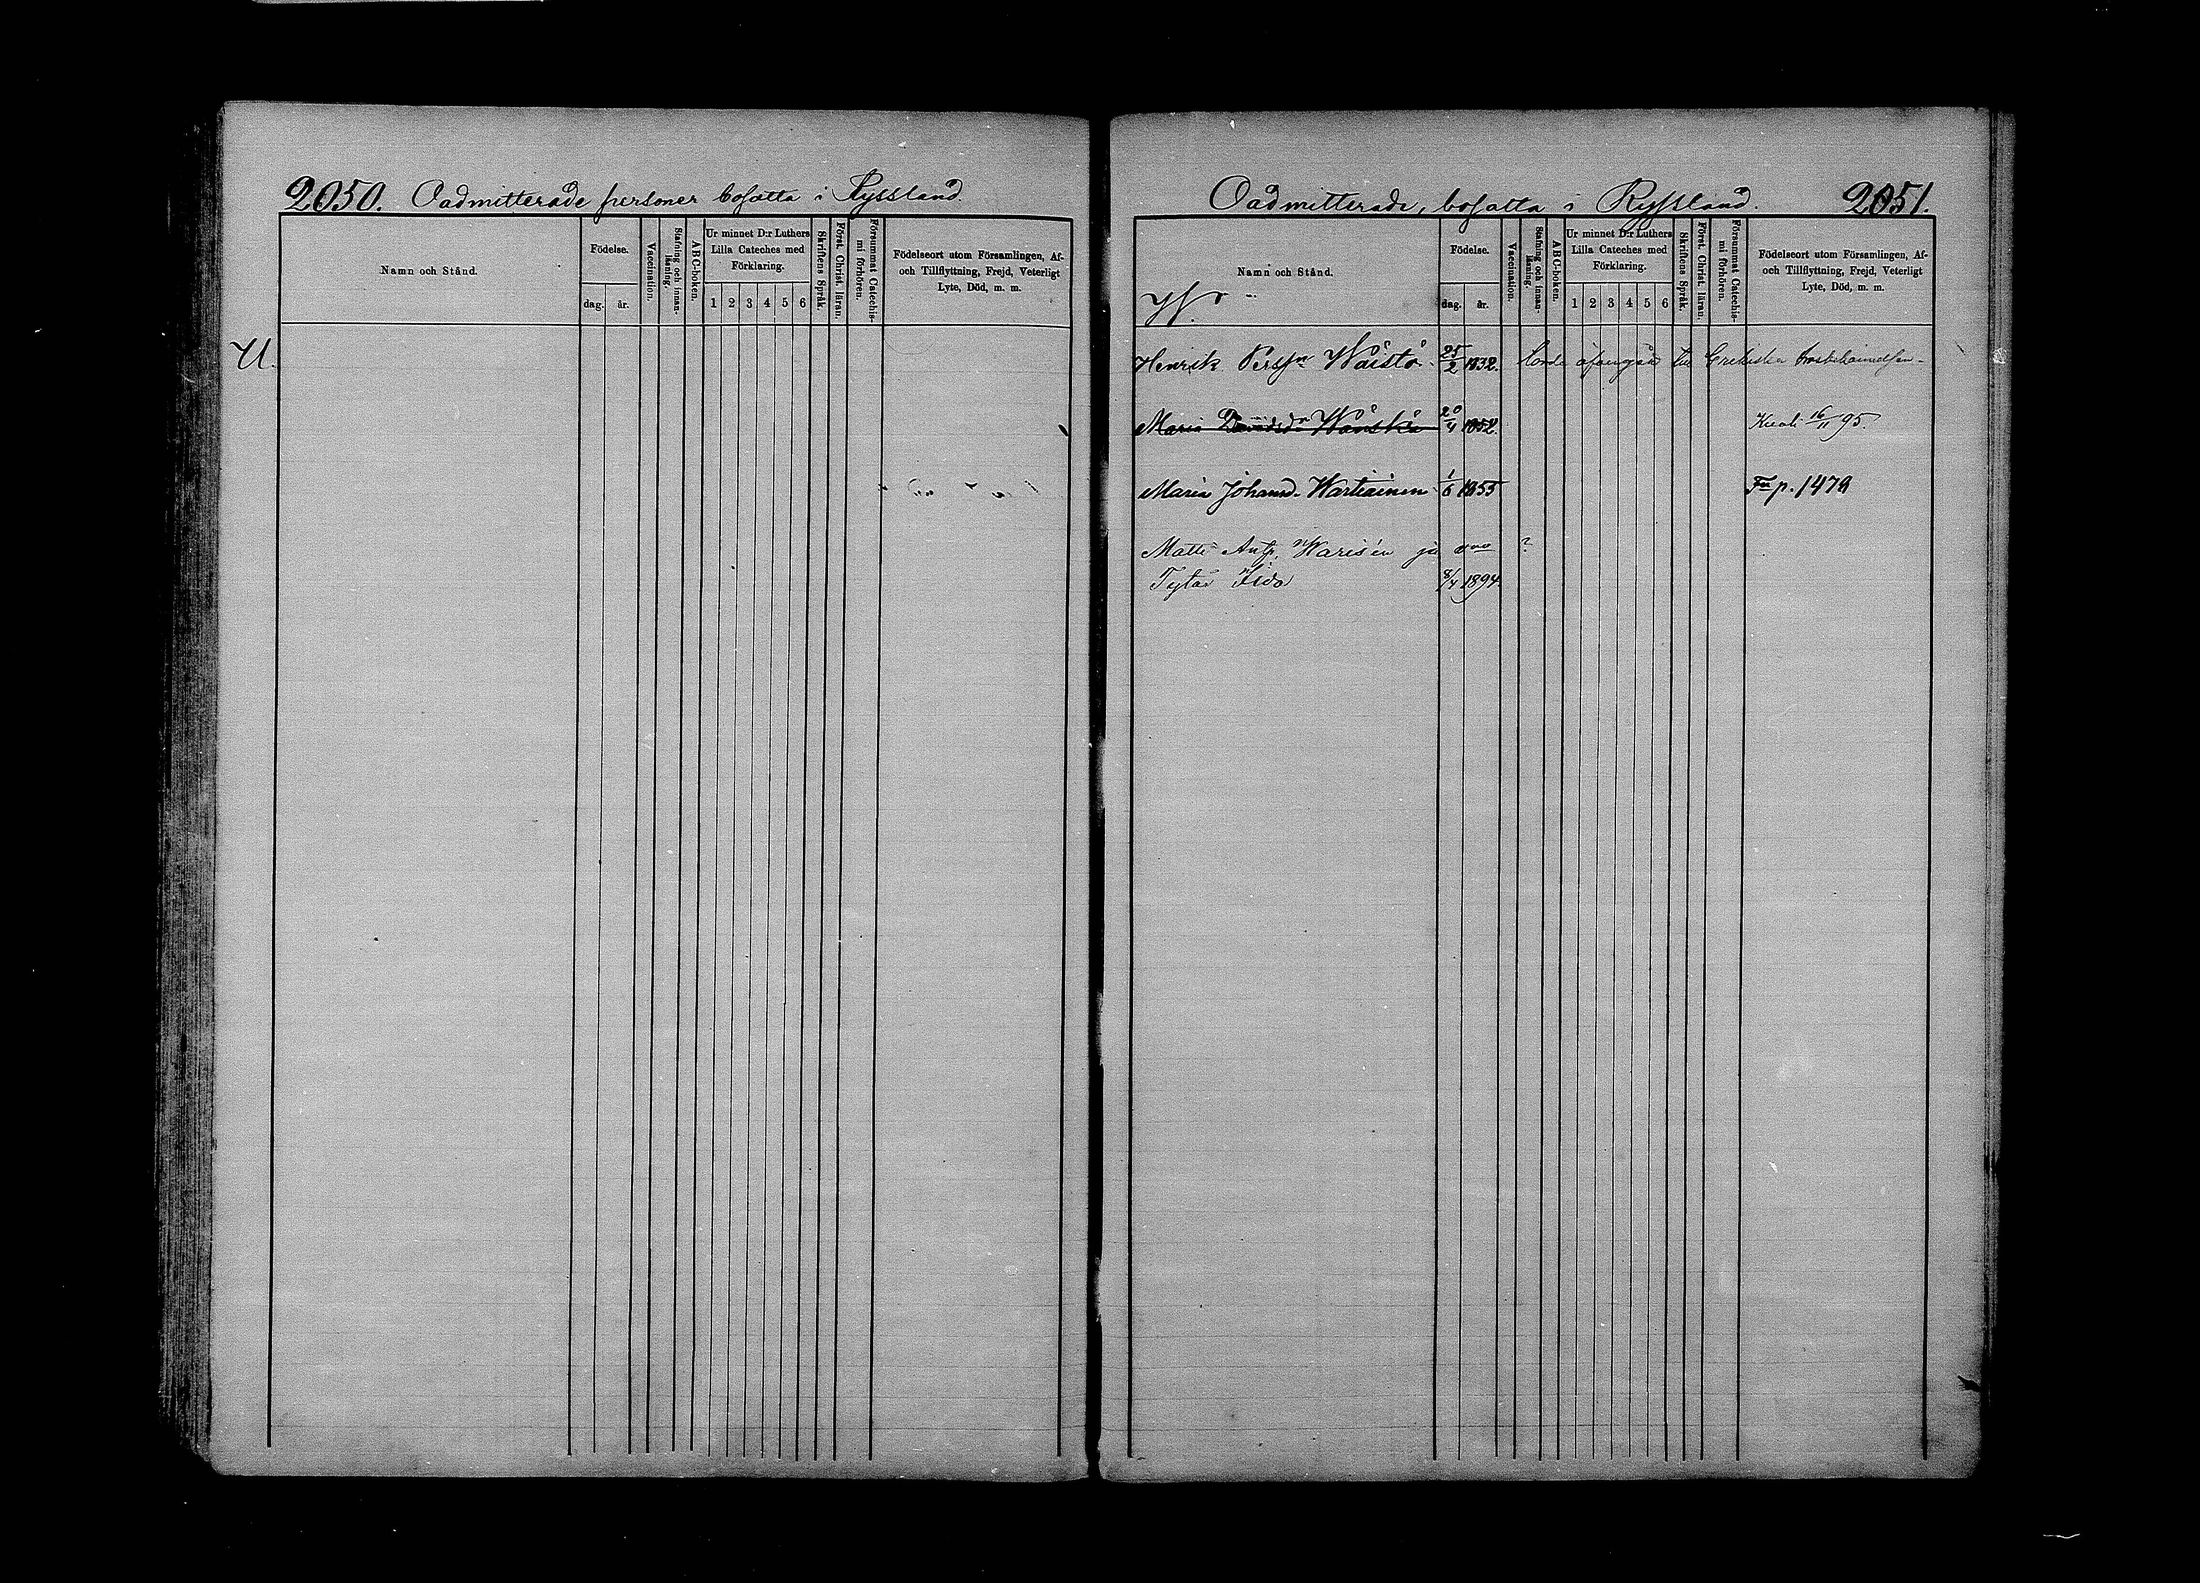 2050. Oadmitterade personer bosatta i Ryssland.
Namn och Stånd.
Födelse.
dag. år.
Vaccination.
Stafning och innanläsning.
ABC-boken.
Ur minnet D:r Luthers
Lilla Cateches med
Förklaring.
1 2 3 4 5 6
Skriftens Språk.
Först. Christ. läran.
Försummat Catechismi förhören.
Födelseort utom Församlingen, Af-
och Tillflyttning, Frejd, Veterligt
Lyte, Död, m. m.
U.
Oadmitterade, bosatta i Ryssland. 2051.
Namn och Stånd.
Födelse.
dag. år.
Vaccination.
Stafning och innanläsning.
ABC-boken.
Ur minnet D:r Luthers
Lilla Cateches med
Förklaring.
1 2 3 4 5 6
Skriftens Språk.
Först. Christ. läran.
Försummat Catechismi förhören.
Födelseort utom Församlingen, Af-
och Tillflyttning, Frejd, Veterligt
Lyte, Död, m. m.
W.
Henrik Persn Wäistö 25/2 1832. Grekiska
Maria Davidsdr 20/4 1852. Kuoli 16/11 95.
Maria Johansd. Wartiainen 1/6 1855 Fn p. 1479
Matti Antp. ja ?
Tytär Iida 8/4 1894